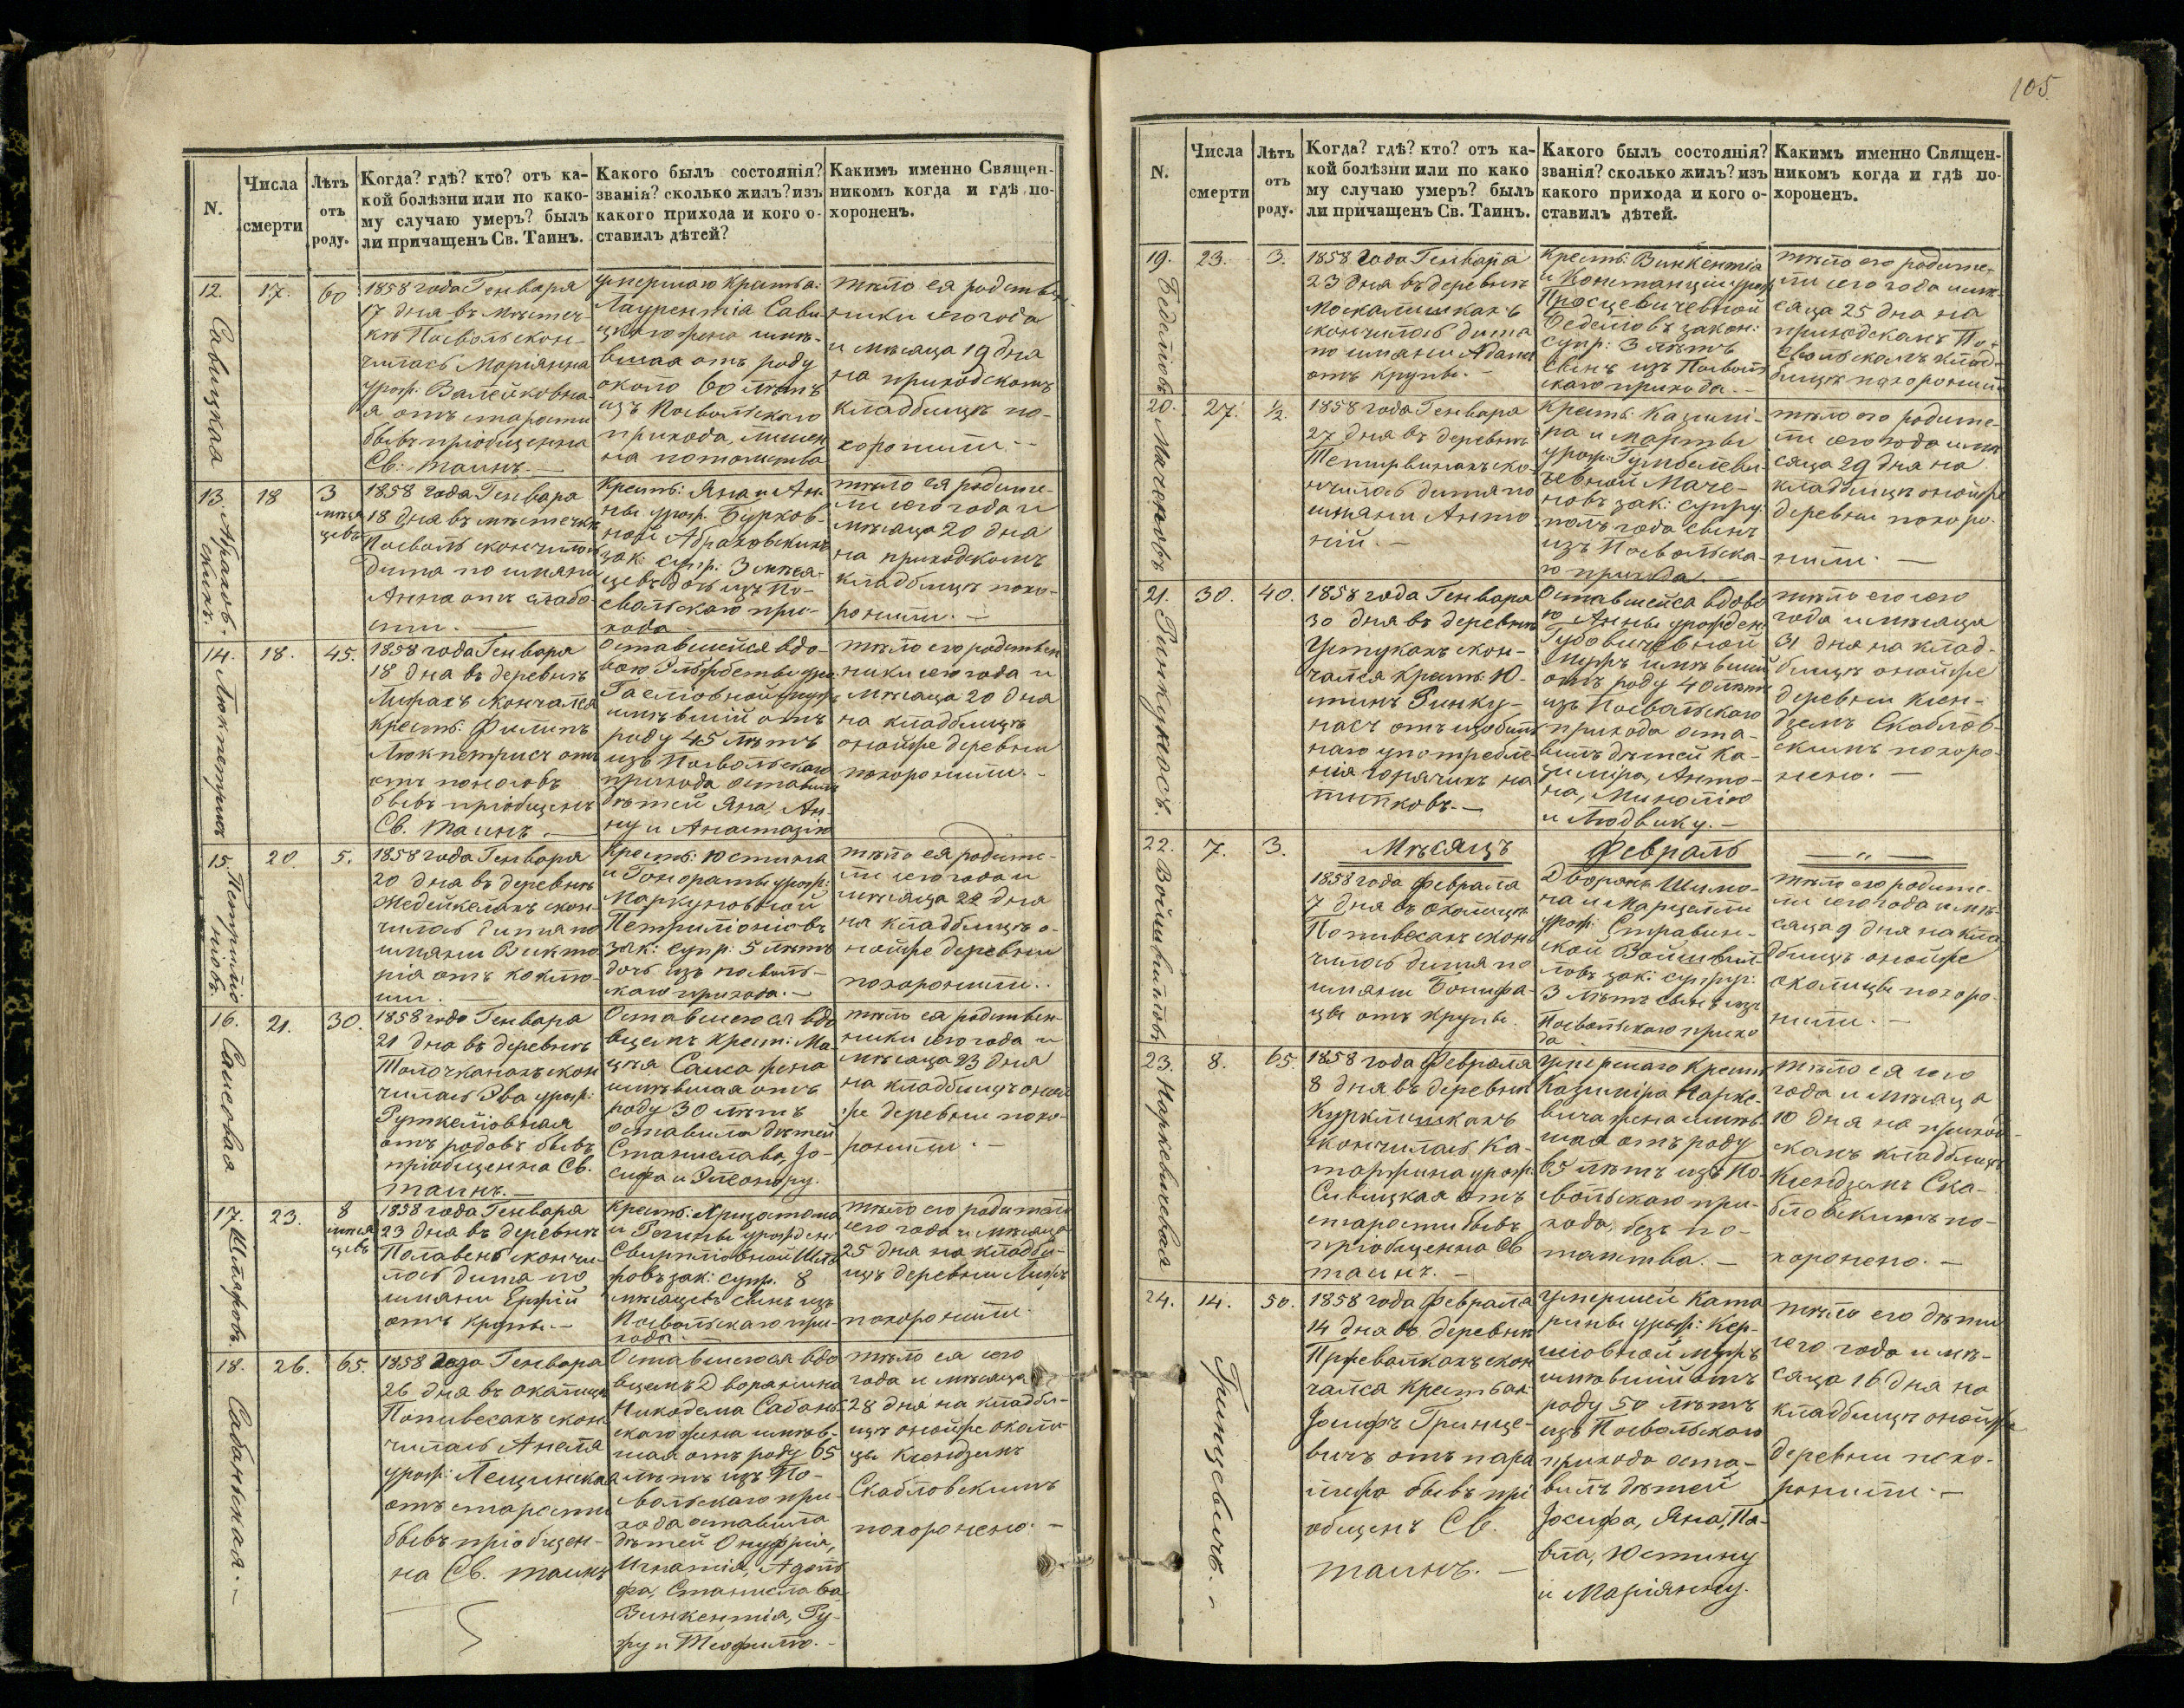 105.
N.
Числа
смерти
Лѣтъ
отъ
роду.
Когда? гдѣ? кто? отъ ка-
кой болѣзни или по како-
му случаю умеръ? былъ
ли причащенъ Св. Таинъ.
Какого былъ состоянія?
званія? сколько жилъ? изъ
какого прихода и кого о-
ставилъ дѣтей?
Какимъ именно Священ-
никомъ когда и гдѣ по-
хороненъ.
12.
Савицкая
17.
60
1858 года Генваря
17 дня въ мѣстеч-
кѣ Посволь скон-
чилась Маріянна
урож: Валейковна-
я отъ старости
бывъ пріобщенна
Св: таинъ.—
умершаго
Лаурентія Сави
цкаго жена имѣ-
вшая отъ роду
около 60 лѣтъ
изъ Посвольскаго
прихода, лишен
на потомства
тѣло ея родствен
ники сего года
и мѣсяца 19 дня
на приходскомъ
кладбищѣ по-
хоронили.-
13.
18
3
мѣся
цевъ
1858 года Генваря
18 дня въ мѣстечкѣ
Посволь скончилось
дитя по имяни
Анна отъ слабо-
сти.
Крест: Яна и Ан-
ны урож. Бурков-
ной
зак: супр: 3 мѣся-
цевъ дочь изъ По-
свольскаго при-
хода
тѣло ея родите-
ли сего года и
мѣсяца 20 дня
на приходскомъ
кладбищѣ похо-
ронили.—
14.
18.
45.
1858 года Генваря
18 дня въ деревнѣ
скончался
Крест: Филипъ
отъ
поносовъ
бывъ пріобщенъ
Св. таинъ.
Оставшейся вдо-
вою
имѣвшій отъ
роду 45 лѣтъ
изъ Посвольскаго
прихода оставилъ
дѣтей Яна, Ан-
ну и Анастазію
тѣло его родствен
ники сего года и
мѣсяца 20 дня
на кладбищѣ
онойже деревни
похоронили.-
15.
20
5.
1858 года Генваря
20 дня въ деревнѣ
скон-
чилась дитя по
имяни Викто
рія отъ коклю-
ши.
Крест: Юстина
и Гонораты урож:
Маркуновной
зак: супр: 5 лѣтъ
дочь изъ посволь-
скаго прихода.—
тѣло ея родите-
ли сего года и
мѣсяца 22 дня
на кладбищѣ о-
нойже деревни
похоронили..
16.
21.
30.
1858 года Генваря
21 дня въ деревнѣ
скон
чилась Эва урож:
отъ родовъ бывъ
пріобщенна Св.
таинъ.—
Оставшегося вдо
вцемъ крест: Ма-
цѣя жена
имѣвшая отъ
роду 30 лѣтъ
оставила дѣтей
Станислава, Іо-
сифа и Элеонору.
тѣло ея родствен-
ники сего года и
мѣсяца 23 дня
на кладбищѣ оной
же деревни похо-
ронили.—
17.
23.
8
мѣся
цевъ
1858 года Генваря
23 дня въ деревнѣ
скончи
лось дитя по
имяни Ержій
отъ крупы.—
зак: супр. 8
мѣсяцевъ сынъ изъ
Посвольскаго при-
хода.—
тѣло его родители
сего года и мѣсяца
25 дня на кладби-
щѣ деревни
похоронили.
18.
Сабанская.—
26.
65.
1858 года Генваря
26 дня въ околицѣ
Попивесахъ скон
чилась Анеля
урож: Лещинская
отъ старости
бывъ пріобщен-
на Св. таинъ
Оставшегося вдо
вцемъ Дворянина
Никодема Сабань-
скаго жена имѣв-
шая отъ роду 65
лѣтъ изъ По-
свольскаго при-
хода оставила
дѣтей Онуфрія,
Игнатія, Адоль
фа, Станислава
Винкентія, Ру-
жу и Теофилю.-
тѣло ея сего
года и мѣсяца
28 дня на кладби-
щѣ онойже околи
цы Ксендзомъ
Скабловскимъ
похоронено.—
N.
Числа
смерти
Лѣтъ
отъ
роду.
Когда? гдѣ? кто? отъ ка-
кой болѣзни или по како
му случаю умеръ? былъ
ли причащенъ Св. Таинъ.
Какого былъ состоянія?
званія? сколько жилъ? изъ
какого прихода и кого о-
ставилъ дѣтей.
Какимъ именно Священ-
никомъ когда и гдѣ по-
хороненъ.
19.
23.
3.
1858 года Генваря
23 дня въ деревнѣ
Москалишкахъ
скончилось дитя
по имяни Адамъ
отъ крупы.—
Крест: Винкентія
и Констанціи урож
Просцевичевной
закон:
супр: 3 лѣтъ
сынъ изъ Посволь
скаго прихода.—
тѣло его родите-
ли сего года и мѣ-
сяца 25 дня на
приходскомъ По-
свольскомъ клад-
бищѣ похоронили
20.
27.
½.
1858 года Генваря
27 дня въ деревнѣ
ско-
нчилось дитя по
имяни Анто
ній.—
Крест: Казимі-
ра и Марты
урож: Гумбалеви-
чевной Маче-
новъ зак: супру.
полъ года сынъ
изъ Посвольска-
го прихода.—
тѣло его родите-
ли сего года и мѣ
сяца 29 дня на
кладбищѣ онойже
деревни похоро-
нили.—
21.
Ринкунасъ.
30.
40.
1858 года Генваря
30 дня въ деревнѣ
скон-
чался крест: Ю-
стинъ Ринку-
насъ отъ изобиль
наго употребле-
нія горячихъ на
питковъ.—
Оставшейся вдово
ю Анны урожден:
мужъ имѣвшій
отъ роду 40 лѣтъ
изъ Посвольскаго
прихода оста-
вилъ дѣтей Ка-
зиміра, Анто-
на,
и Людвику.—
тѣло его сего
года и мѣсяца
31 дня на клад-
бищѣ онойже
деревни Ксен-
дземъ Скаблов-
скимъ похоро-
нено.—
22.
7.
3.
Мѣсяцъ
Февраль
— „ —
1858 года Февраля
7 дня въ околицѣ
Попивесахъ скон
чилось дитя по
имяни Бонифа-
цы отъ крупы.
Дворянъ Шимо-
на и Марцелли
урож: Стравин-
ской
зак: супруг:
3 лѣтъ сынъ изъ
Посвольскаго прихо
да
тѣло его родите-
ли сего года и мѣ-
сяца 9 дня на кла
дбищѣ онойже
околицы похоро-
нили.—
23.
Наркевичевая
8.
65.
1858 года Февраля
8 дня въ деревнѣ
скончилась Ка-
таржина урож.
Сивицкая отъ
старости бывъ
пріобщенна Св
таинъ.—
умершаго Крест:
Казиміра Нарке-
вича жена имѣв-
шая отъ роду
65 лѣтъ изъ По-
свольскаго при-
хода, безъ по-
томства.—
тѣло ея сего
года и мѣсяца
10 дня на приход-
скомъ кладбищѣ
Ксендзомъ Ска-
бловскимъ по-
хоронено.—
24.
Гринцевичъ.-
14.
50.
1858 года Февраля
14 дня въ деревнѣ
скон
чался Крестьян:
Іосифъ Гринце-
вичъ отъ пара
лижа бывъ прі
общенъ Св.
таинъ.—
умершей Ката
рины урож: Кер-
шовной мужъ
имѣвшій отъ
роду 50 лѣтъ
изъ Посвольскаго
прихода оста-
вилъ дѣтей
Іосифа, Яна, Па-
вла, Юстину
и Маріянну.
тѣло его дѣти
сего года и мѣ-
сяца 16 дня на
кладбищѣ онойже
деревни похо-
ронили.—